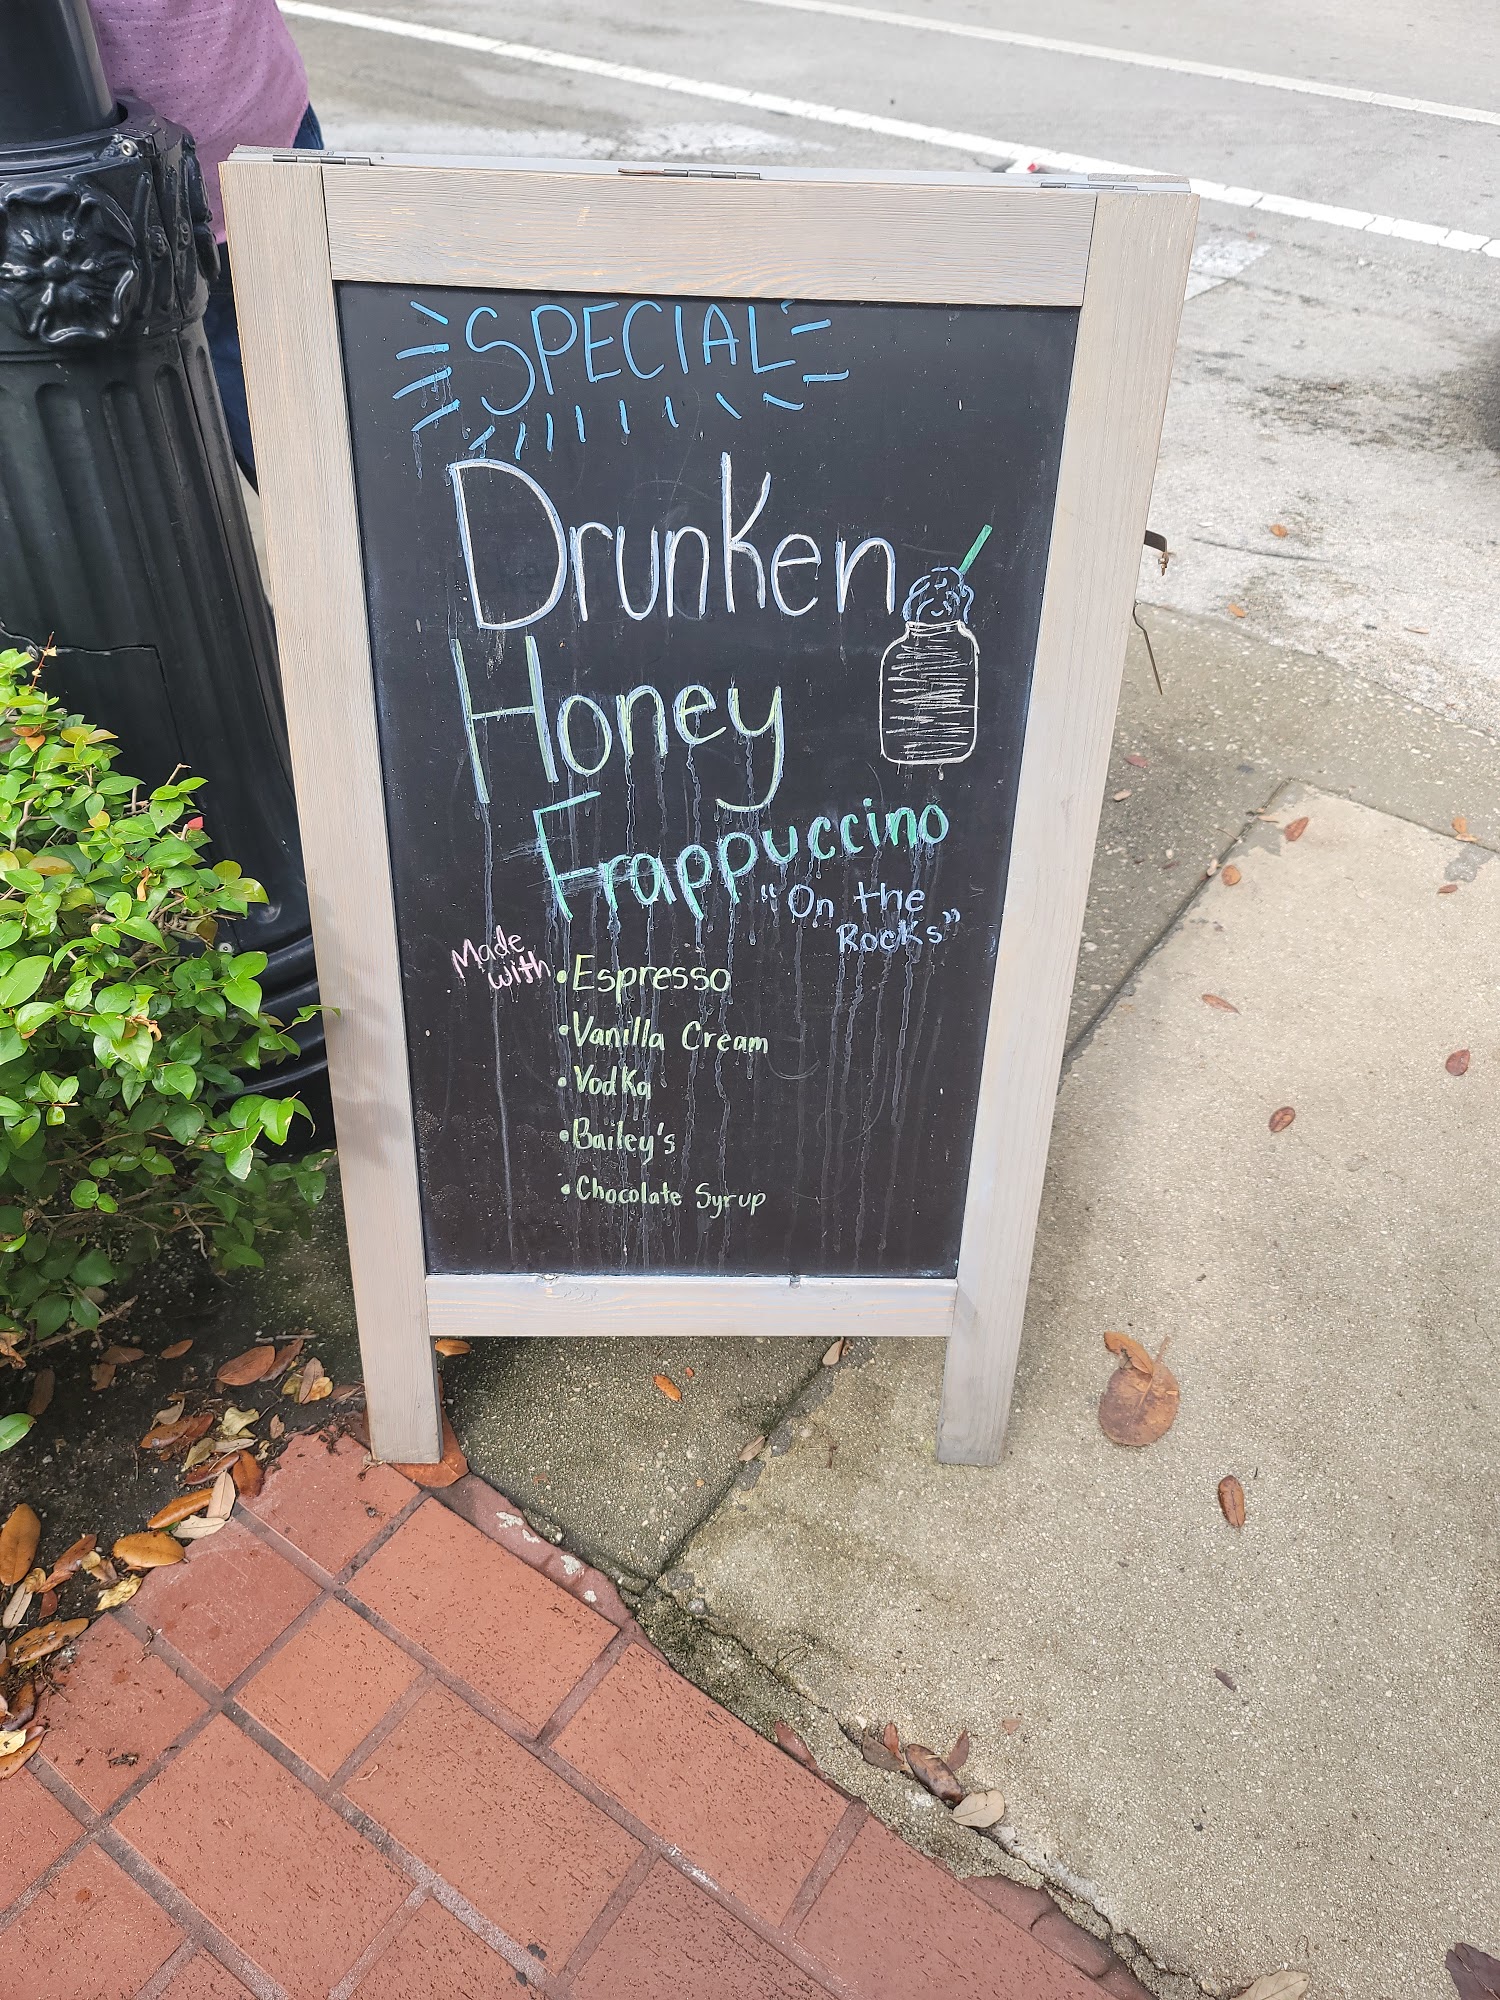 SPECIAL
Drunken
Honey
Frappuccino
"On the
Rocks"
Made
with
•Espresso
•Vanilla Cream
•Vodka
•Bailey's
•Chocolate Syrup